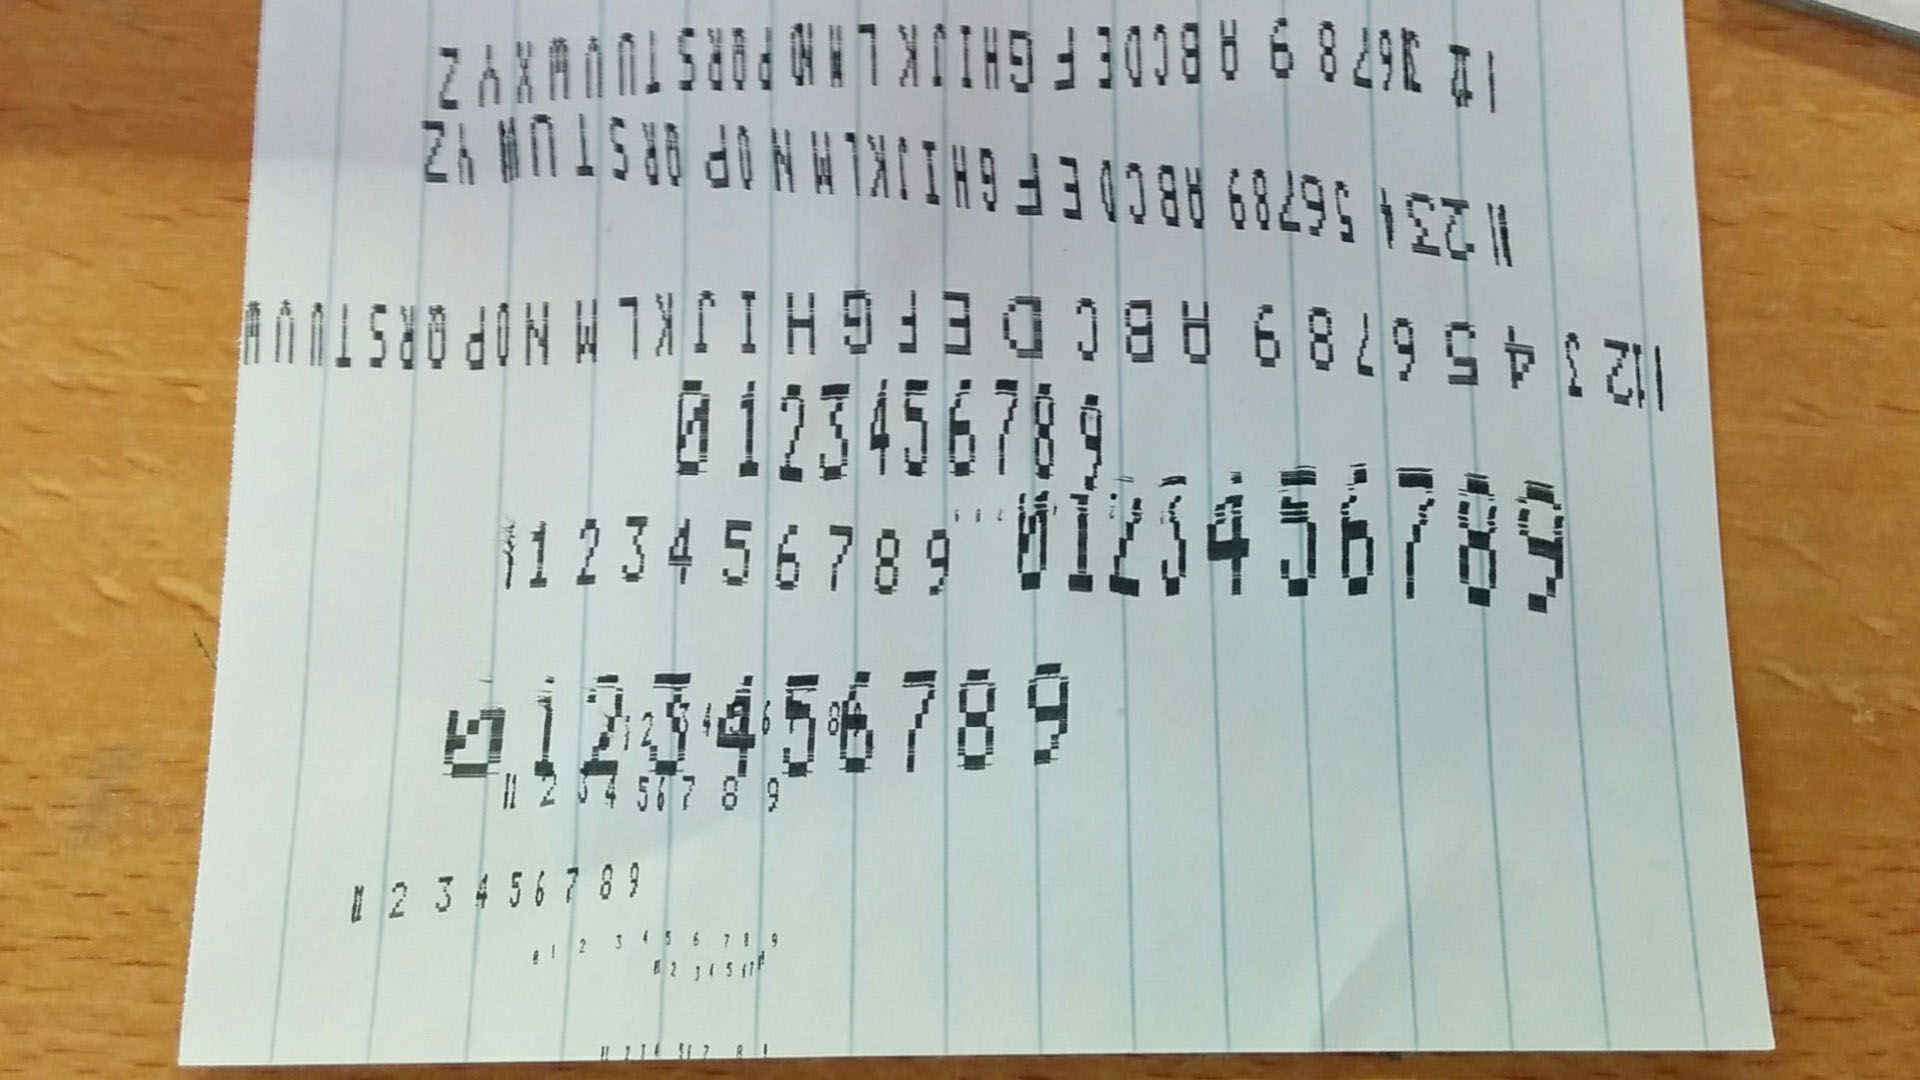 678 9 A BCDEF GHIJKL MNO PQRSTUVWXYZ
11 234 56789 ABCDEFGHIJKLMNOPQRSTUWYZ
112 3 4 5 6 7 8 9 A B C D E F G H I J K L M N O P Q R S T U V W
0 1 2 3 4 5 6 7 8 9
1 1 2 3 4 5 6 7 8 9
0 1 2 3 4 5 6 7 8 9
0 1 2 3 4 5 6 7 8 9
1 2 3 4 5 6 8
11 2 3 4 5 6 7 8 9
2 3 4 5 6 7 8 9
0 1 2 3 4 5 6 7 8 9
2 3 4 5 6 7